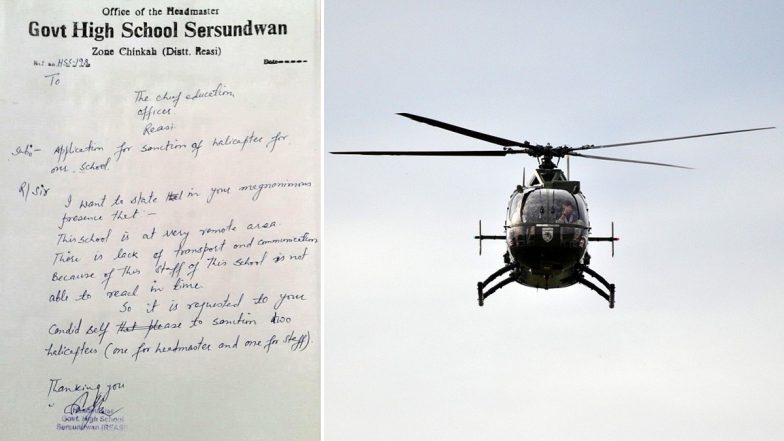 Office of the Headmaster
Govt High School Sersundwan
Zone Chinkah (Distt. Reasi)
Ref. no. HSS/28
Date
To
The chief education
officer
Reasi
Sub:- Application for sanction of halicapter for
our school.
R/Sir
I want to state that in your megnonimous
presence that :-
This school is at very remote area
There is lack of transport and communication
Because of this staff of this school is not
able to reach in time.
So it is requested to your
Candid self that please to sanction two
halicapters (one for headmaster and one for staff).
Thanking you
Govt. High School
Sersundwan (REASI)